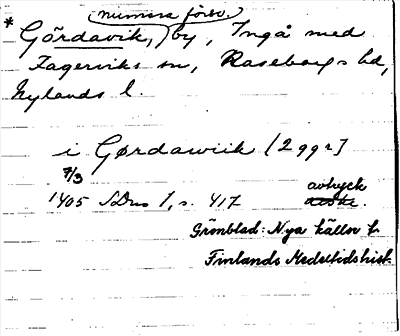 numera försv.
* Gördavik, by, Ingå med
Fagerviks sn, Raseborgs hd,
Nylands l.
i Gørdawiik [2 ggr]
7/3
1405 SDns 1, s. 417 avtryck
Grönblad: Nya källor t.
Finlands Medeltidshist.